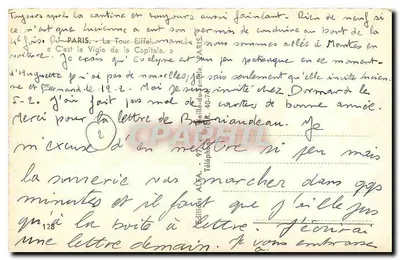 Toujours après la cantine et toujours aussi fainéant. Rien de neuf si
ce n'est que Lucienne a eut son permis de conduire au bout de la
4e fois. PARIS. — La Tour Eiffel. dimanche nous sommes allés à Mantes en
« C'est la Vigie de la Capitale. »
voiture. Je crois qu'Evelyne est un peu patraque en ce moment-
d'Huguette je n'ai pas de nouvelles, je sais seulement qu'elle invite Lucien-
ne et Fernand le 19-2. Moi je suis invité chez Dormard le
5-2. J'ai fait pas mal de cartes de bonne année.
Merci pour la lettre de Je
m'excuse d'en mettre si peu mais
la sonnerie vas marcher dans qqs
minutes et il faut que j'aille jus
qu'à la boîte à lettre. J'écrirai
une lettre demain. Je vous embrasse
128
2
PARIS.
CPARAMA